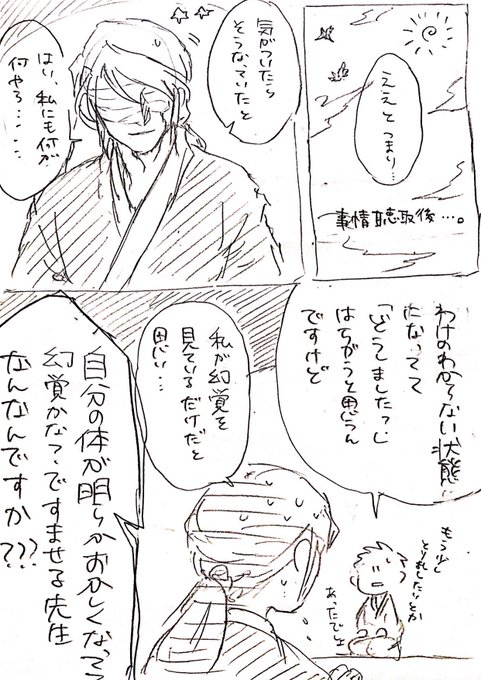 ええと
つまり…
事情聴取後…。
気がついたら
そうなっていたと
はい、私にも何が
何やら……
わけのわからない状態に
なってて
「どうしました?」
はちがうと思うん
ですけど
もう少し
とり乱したりとか
あったでしょ
私が幻覚を
見ているだけだと
思い…
自分の体が明らかおかしくなってて
幻覚かな?ですませる先生
なんなんですか???